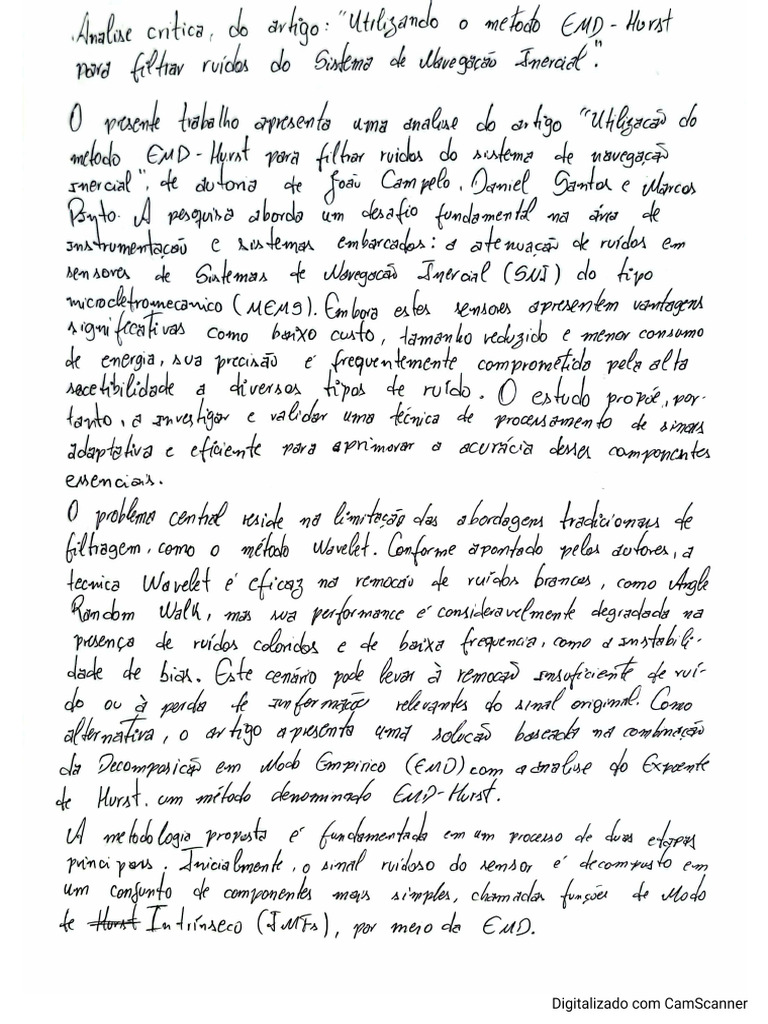 Analise critica, do artigo: "Utilizando o metodo EMD-Hurst
para filtrar ruídos do Sistema de Navegação Inercial".
O presente trabalho apresenta uma analise do artigo "Utilização do
metodo EMD-Hurst para filtrar ruidos do sistema de navegação
inercial", de autoria de João Campelo, Daniel Santos e Marcos
Pinto. A pesquisa aborda um desafio fundamental na área de
instrumentação e sistemas embarcados: a atenuação de ruídos em
sensores de Sistemas de Navegação Inercial (SNI) do tipo
microeletromecanico (MEMS). Embora estes sensores apresentem vantagens
significativas como baixo custo, tamanho reduzido e menor consumo
de energia, sua precisão é frequentemente comprometida pela alta
sucetibilidade a diversos tipos de ruído. O estudo propõe, por-
tanto, a investigar e validar uma técnica de processamento de sinais
adaptativa e eficiente para aprimorar a acurácia desses componentes
essenciais.
O problema central reside na limitação das abordagens tradicionais de
filtragem, como o método Wavelet. Conforme apontado pelos autores, a
tecnica Wavelet é eficaz na remoção de ruídos brancos, como Angle
Random Walk, mas sua performance é consideravelmente degradada na
presença de ruídos coloridos e de baixa frequencia, como a instabili-
dade de bias. Este cenário pode levar à remoção insuficiente de ruí-
do ou à perda de informação relevantes do sinal original. Como
alternativa, o artigo apresenta uma solução baseada na combinação
da Decomposição em Modo Empirico (EMD) com a analise do Expoente
de Hurst, um método denominado EMD-Hurst.
A metodologia proposta é fundamentada em um processo de duas etapas
principais. Inicialmente, o sinal ruidoso do sensor é decomposto em
um conjunto de componentes mais simples, chamadas funções de Modo
de Hurst Intrínseco (IMFs), por meio da EMD.
Digitalizado com CamScanner